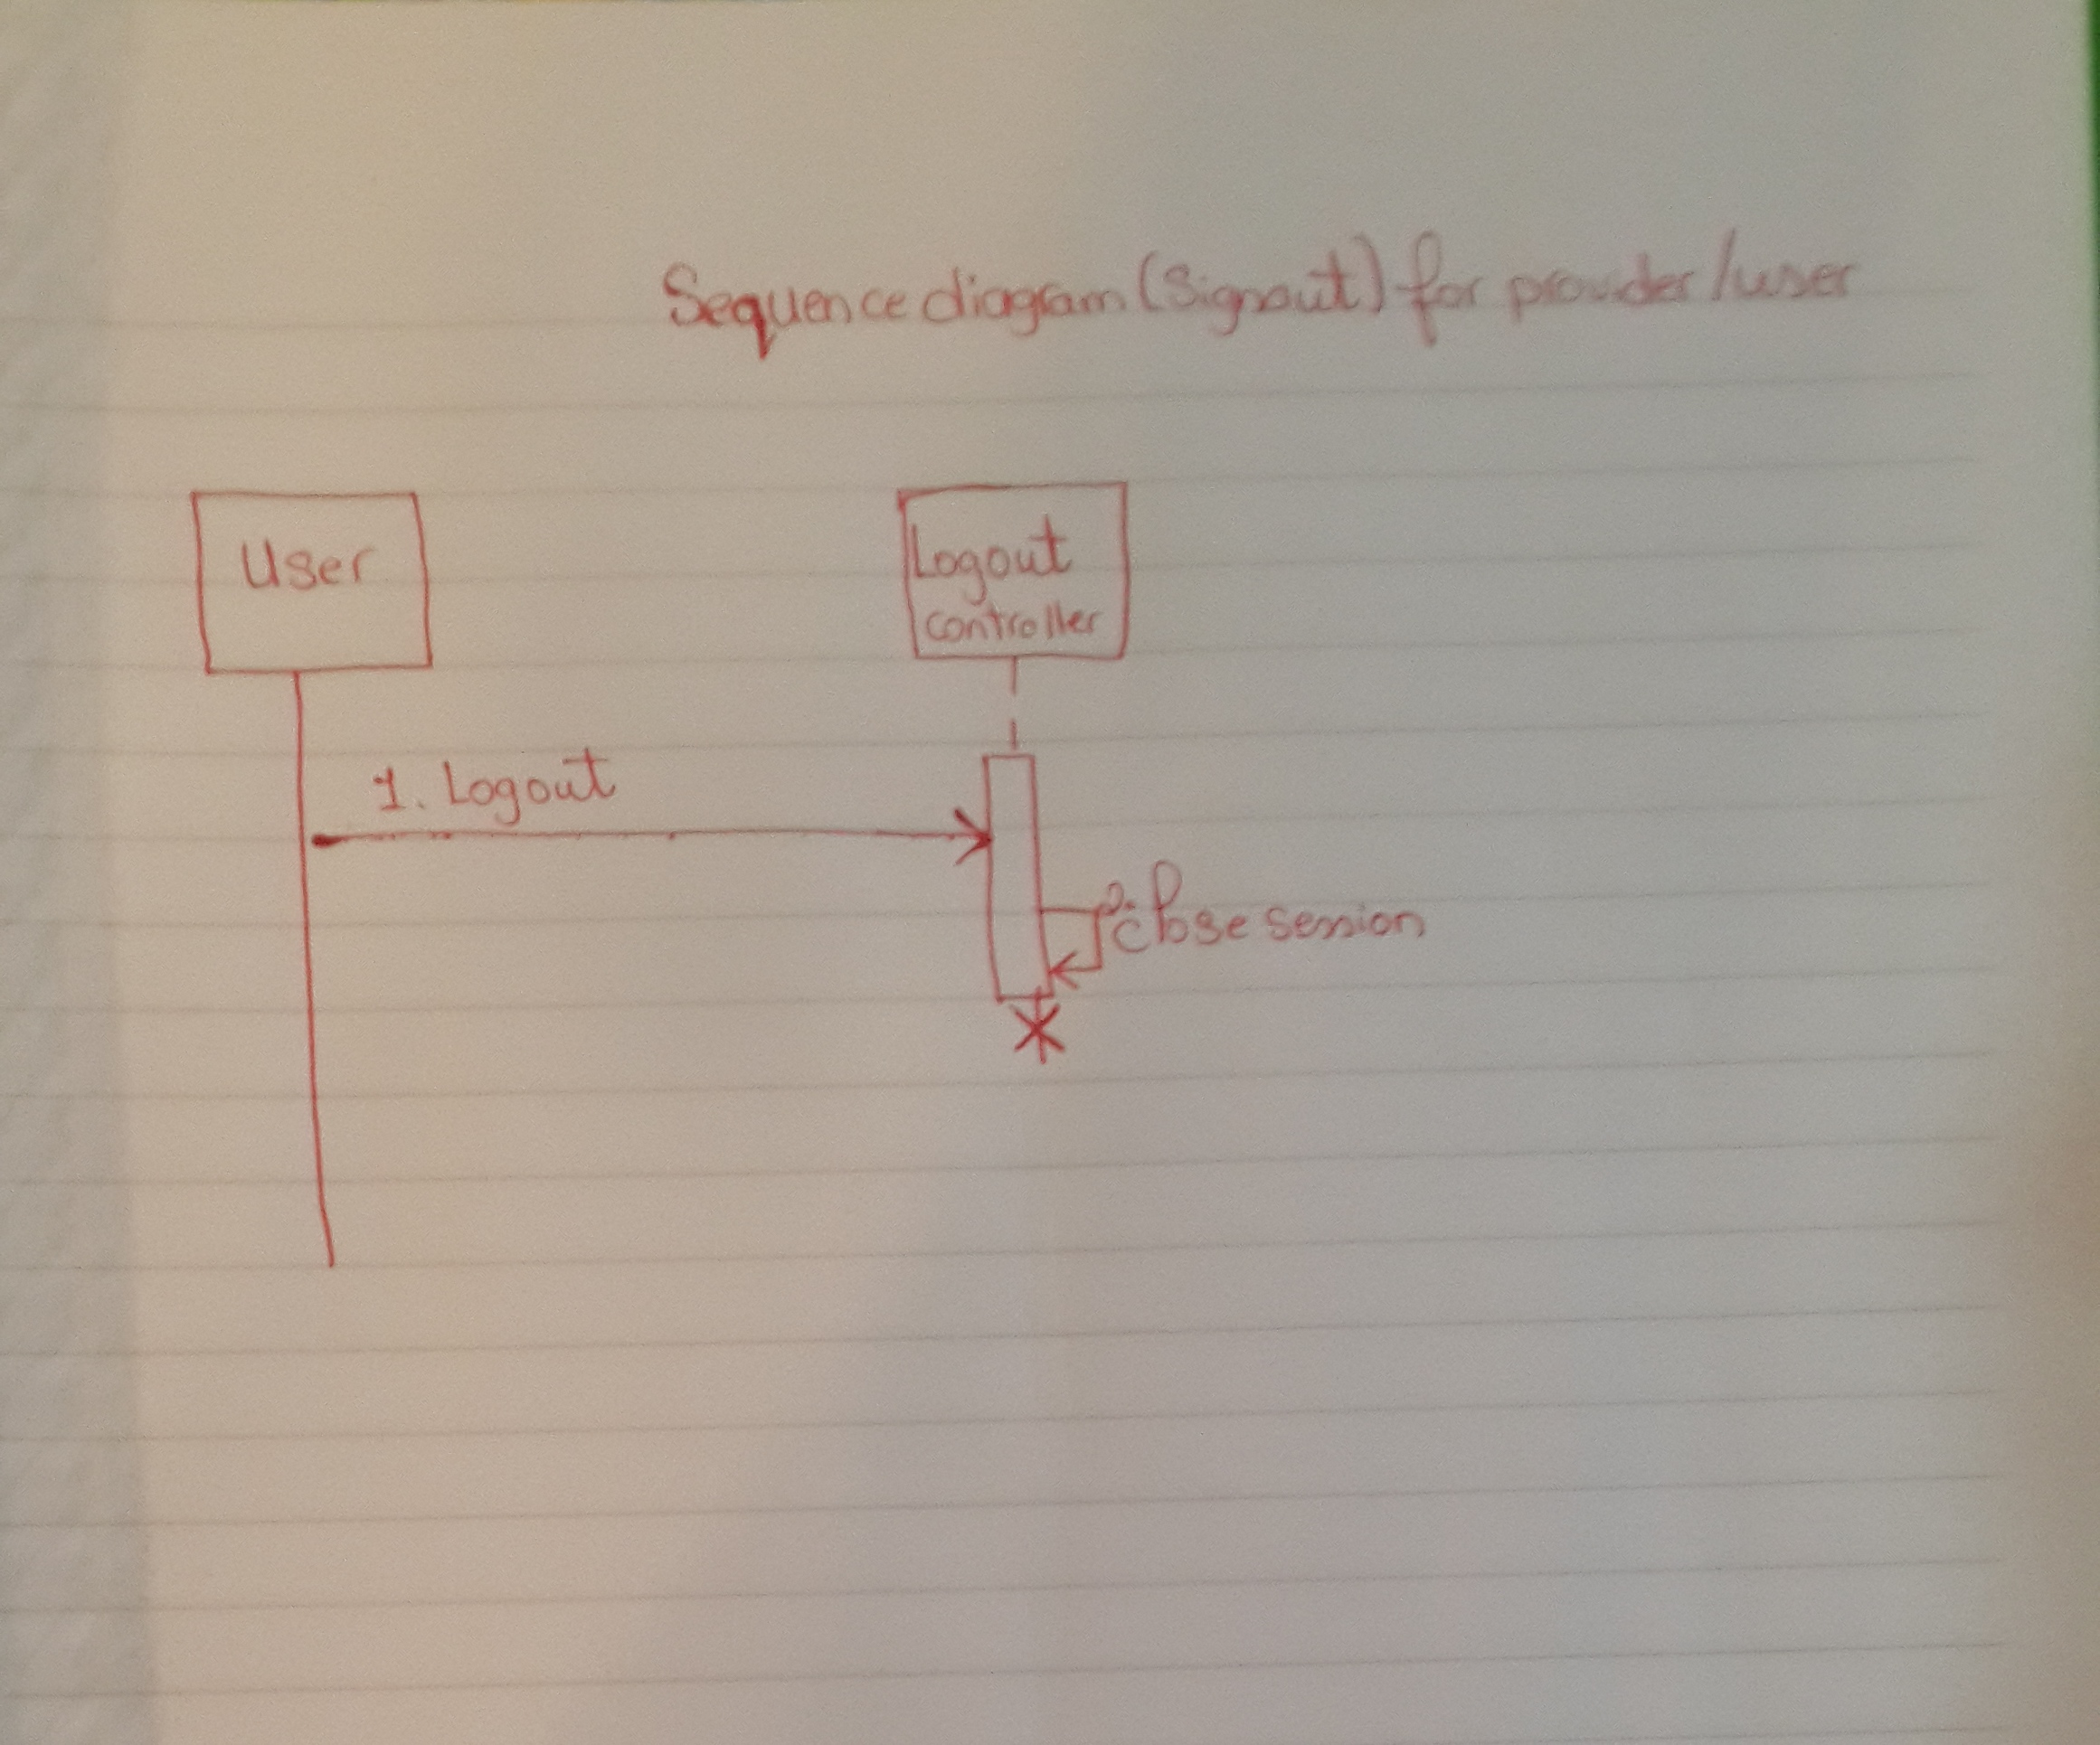 Sequence diagram (Signout) for provider/user
User
Logout
controller
1. Logout
2. close session